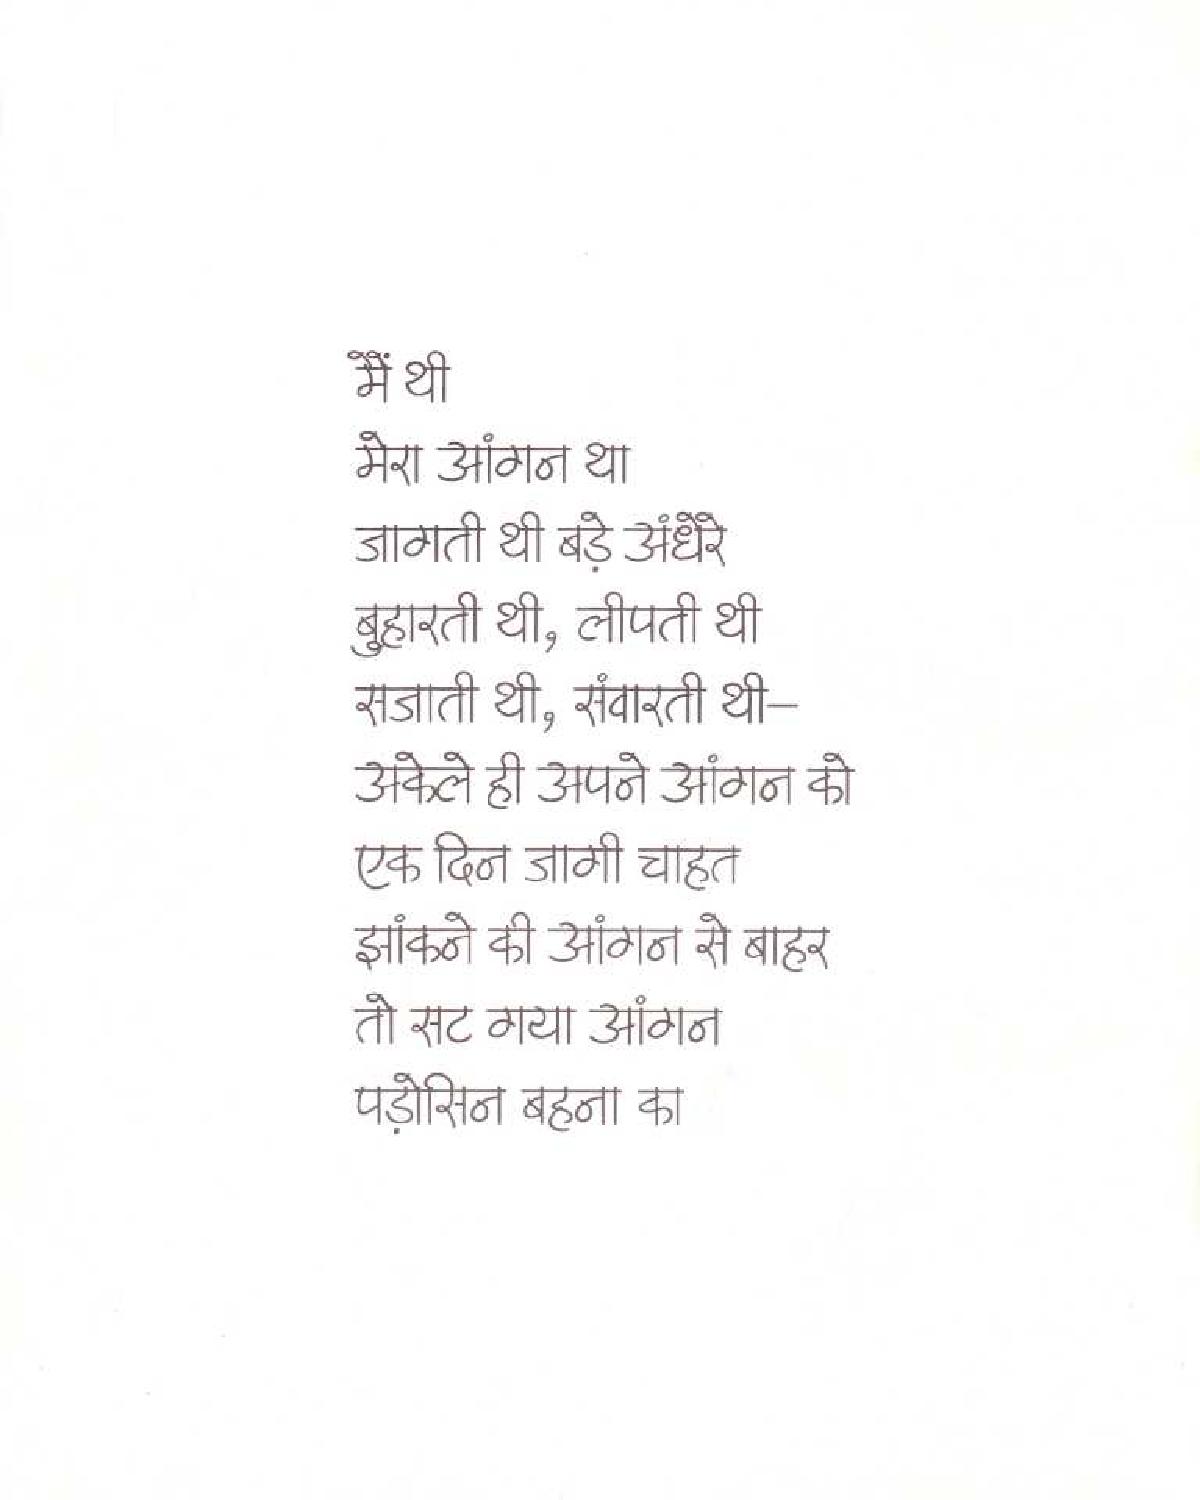 मैं थी
मेरा आंगन था
जागती थी बड़े अंधेरे
बुहारती थी, लीपती थी
सजाती थी, संवारती थी–
अकेले ही अपने आंगन को
एक दिन जागी चाहत
झांकने की आंगन से बाहर
तो सट गया आंगन
पड़ोसिन बहना का